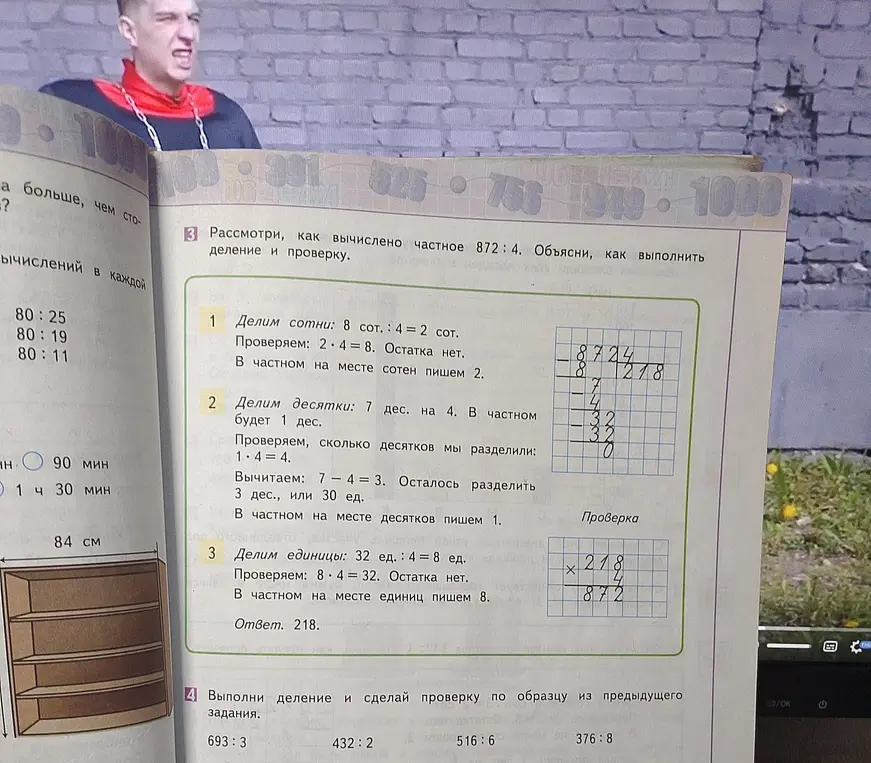 100 • 391 525 • 756 949 • 1000
а больше, чем сто-
?
ычислений в каждой
80 : 25
80 : 19
80 : 11
90 мин
1 ч 30 мин
84 см
3 Рассмотри, как вычислено частное 872 : 4. Объясни, как выполнить
деление и проверку.
1 Делим сотни: 8 сот. : 4 = 2 сот.
Проверяем: 2 · 4 = 8. Остатка нет.
В частном на месте сотен пишем 2.
2 Делим десятки: 7 дес. на 4. В частном
будет 1 дес.
Проверяем, сколько десятков мы разделили:
1 · 4 = 4.
Вычитаем: 7 − 4 = 3. Осталось разделить
3 дес., или 30 ед.
В частном на месте десятков пишем 1.
3 Делим единицы: 32 ед. : 4 = 8 ед.
Проверяем: 8 · 4 = 32. Остатка нет.
В частном на месте единиц пишем 8.
Ответ. 218.
− 872 4
8 218
− 7
4
− 32
32
0
Проверка
× 218
4
872
4 Выполни деление и сделай проверку по образцу из предыдущего
задания.
693 : 3 432 : 2 516 : 6 376 : 8